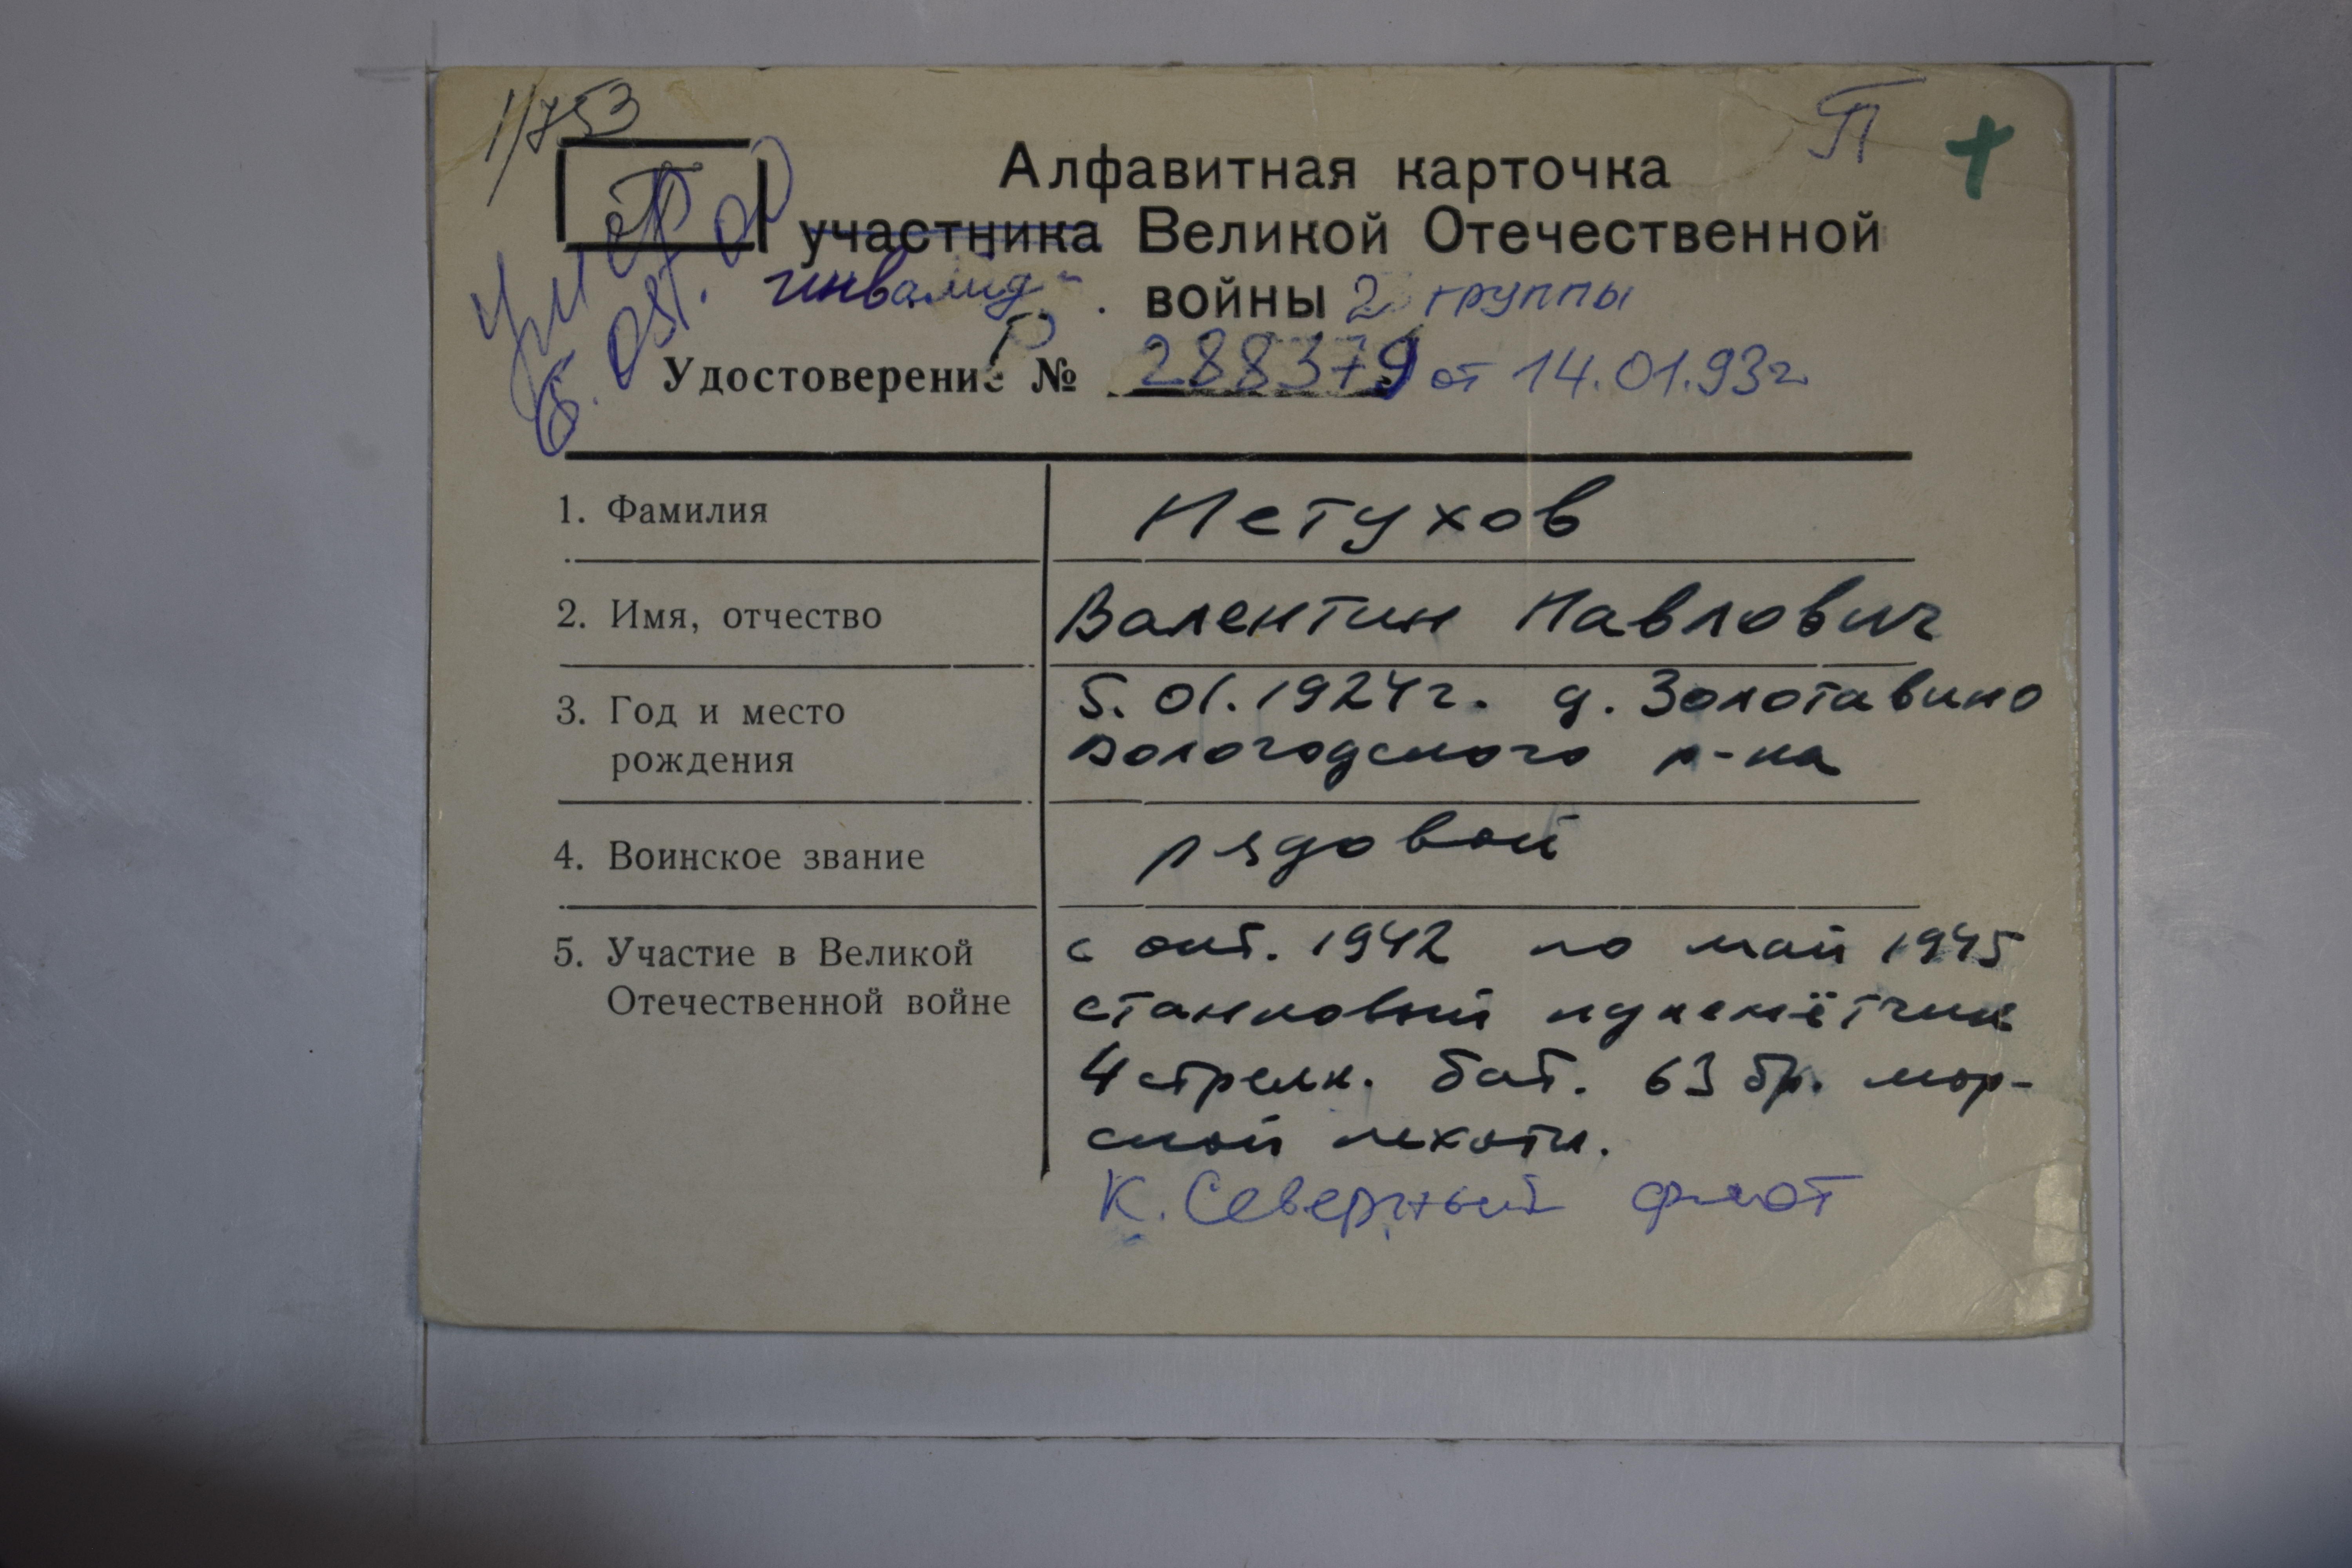 1/753
П
П
Алфавитная карточка
участника Великой Отечественной
инвалид войны 2 группы
Р
Удостоверение № 288379 от 14.01.93г.
умер
1. Фамилия Петухов
2. Имя, отчество Валентин Павлович
3. Год и место 5.01.1924г. д. Золотавино
рождения Вологодского р-на
4. Воинское звание рядовой
5. Участие в Великой с окт. 1942 по май 1945
Отечественной войне станковый пулемётчик
4 стрелк. бат. 63 бр. мор-
ской пехоты.
К. Северный флот